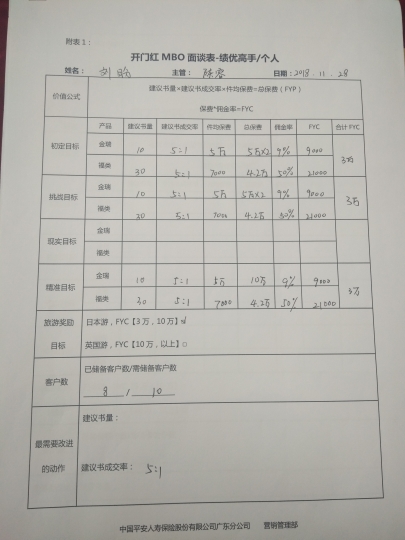 附表1：
开门红 MBO 面谈表-绩优高手/个人
姓名： 刘 主管： 日期：2018.11.28
价值公式 建议书量×建议书成交率×件均保费=总保费（FYP）
保费*佣金率=FYC
产品 建议书量 建议书成交率 件均保费 总保费 佣金率 FYC 合计 FYC
初定目标 金瑞 10 5:1 5万 5万×2 9% 9000 3万
福类 30 5:1 7000 4.2万 50% 21000
挑战目标 金瑞 10 5:1 5万 5万×2 9% 9000 3万
福类 30 5:1 7000 4.2万 50% 21000
现实目标 金瑞
福类
瞄准目标 金瑞 10 5:1 5万 10万 9% 9000 3万
福类 30 5:1 7000 4.2万 50% 21000
旅游奖励目标 日本游，FYC【3万，10万】
英国游，FYC【10万，以上】○
客户数 已储备客户数/需储备客户数
8 / 10
最需要改进的动作 建议书量：
建议书成交率： 5:1
中国平安人寿保险股份有限公司广东分公司 营销管理部